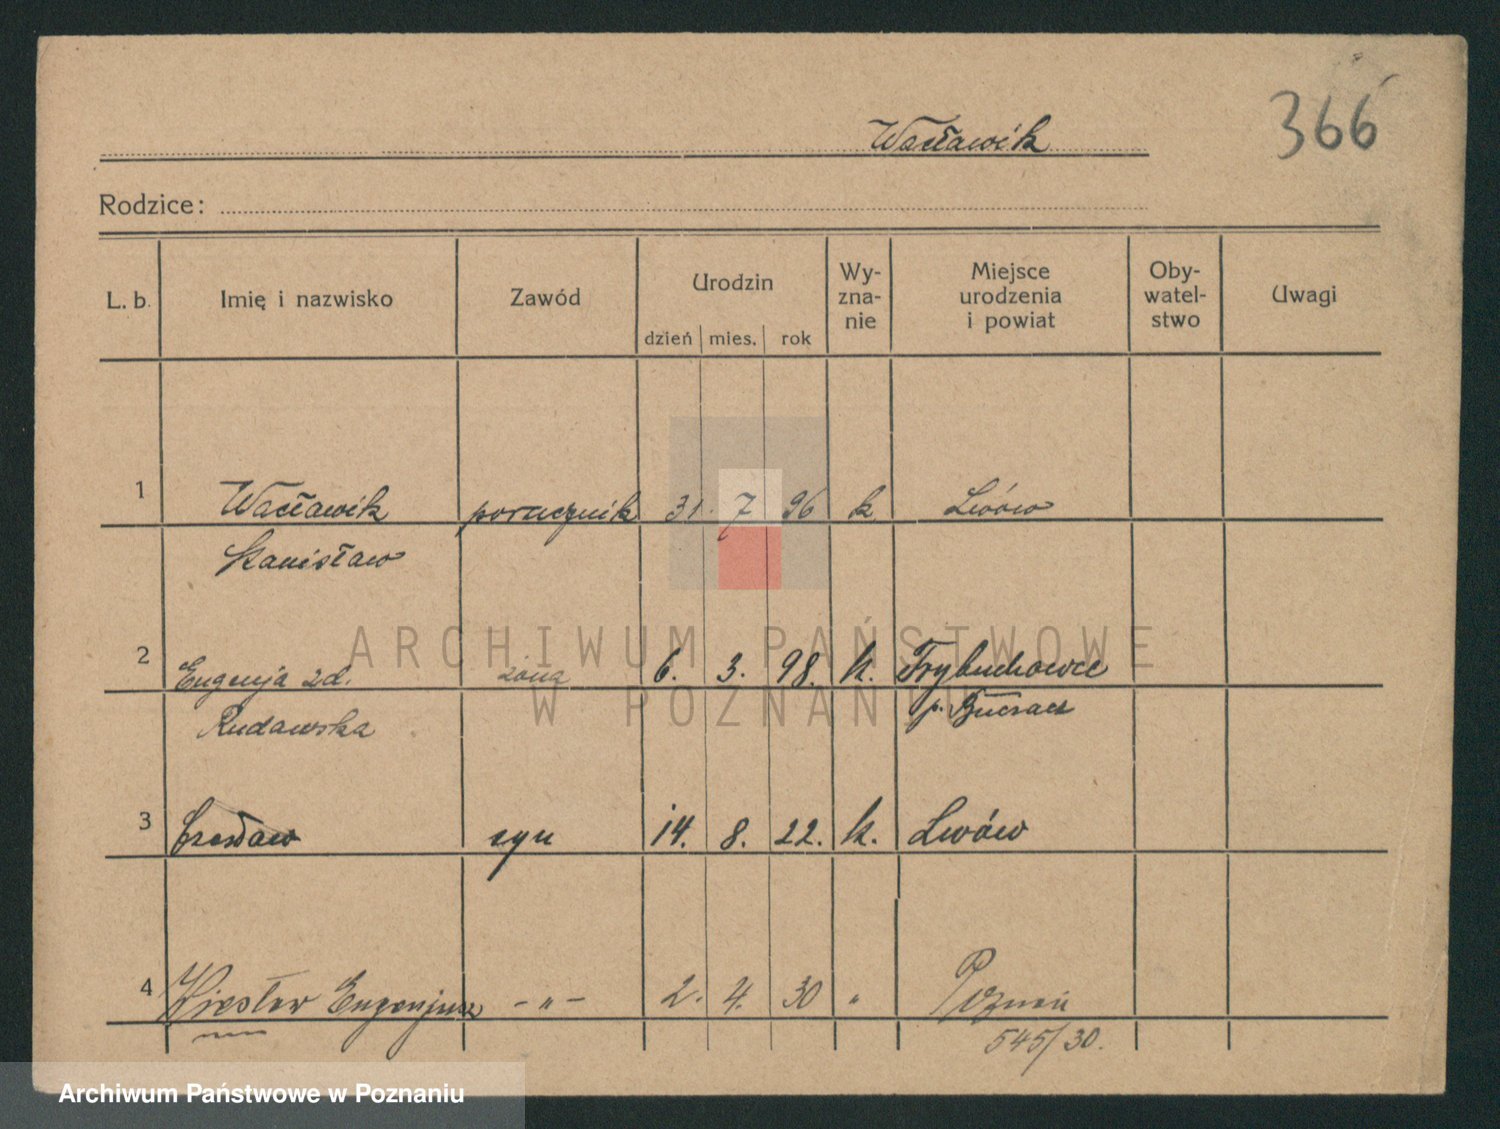 366
Wacławik
Rodzice:
L. b. Imię i nazwisko Zawód Urodzin dzień mies. rok Wy-zna-nie Miejsce urodzenia i powiat Oby-watel-stwo Uwagi
1 Wacławik porucznik 31. 7 96 k Lwów
Stanisław
2 Eugenja zd. żona 6. 3. 98. k. Trybuchowce
Rudawska p. Buczacz
3 Czesław syn 14. 8. 22. k. Lwów
4 Wiesław Eugenjusz - " - 2. 4. 30 " Poznań
545/30.
ARCHIWUM PAŃSTWOWE
W POZNANIU
Archiwum Państwowe w Poznaniu